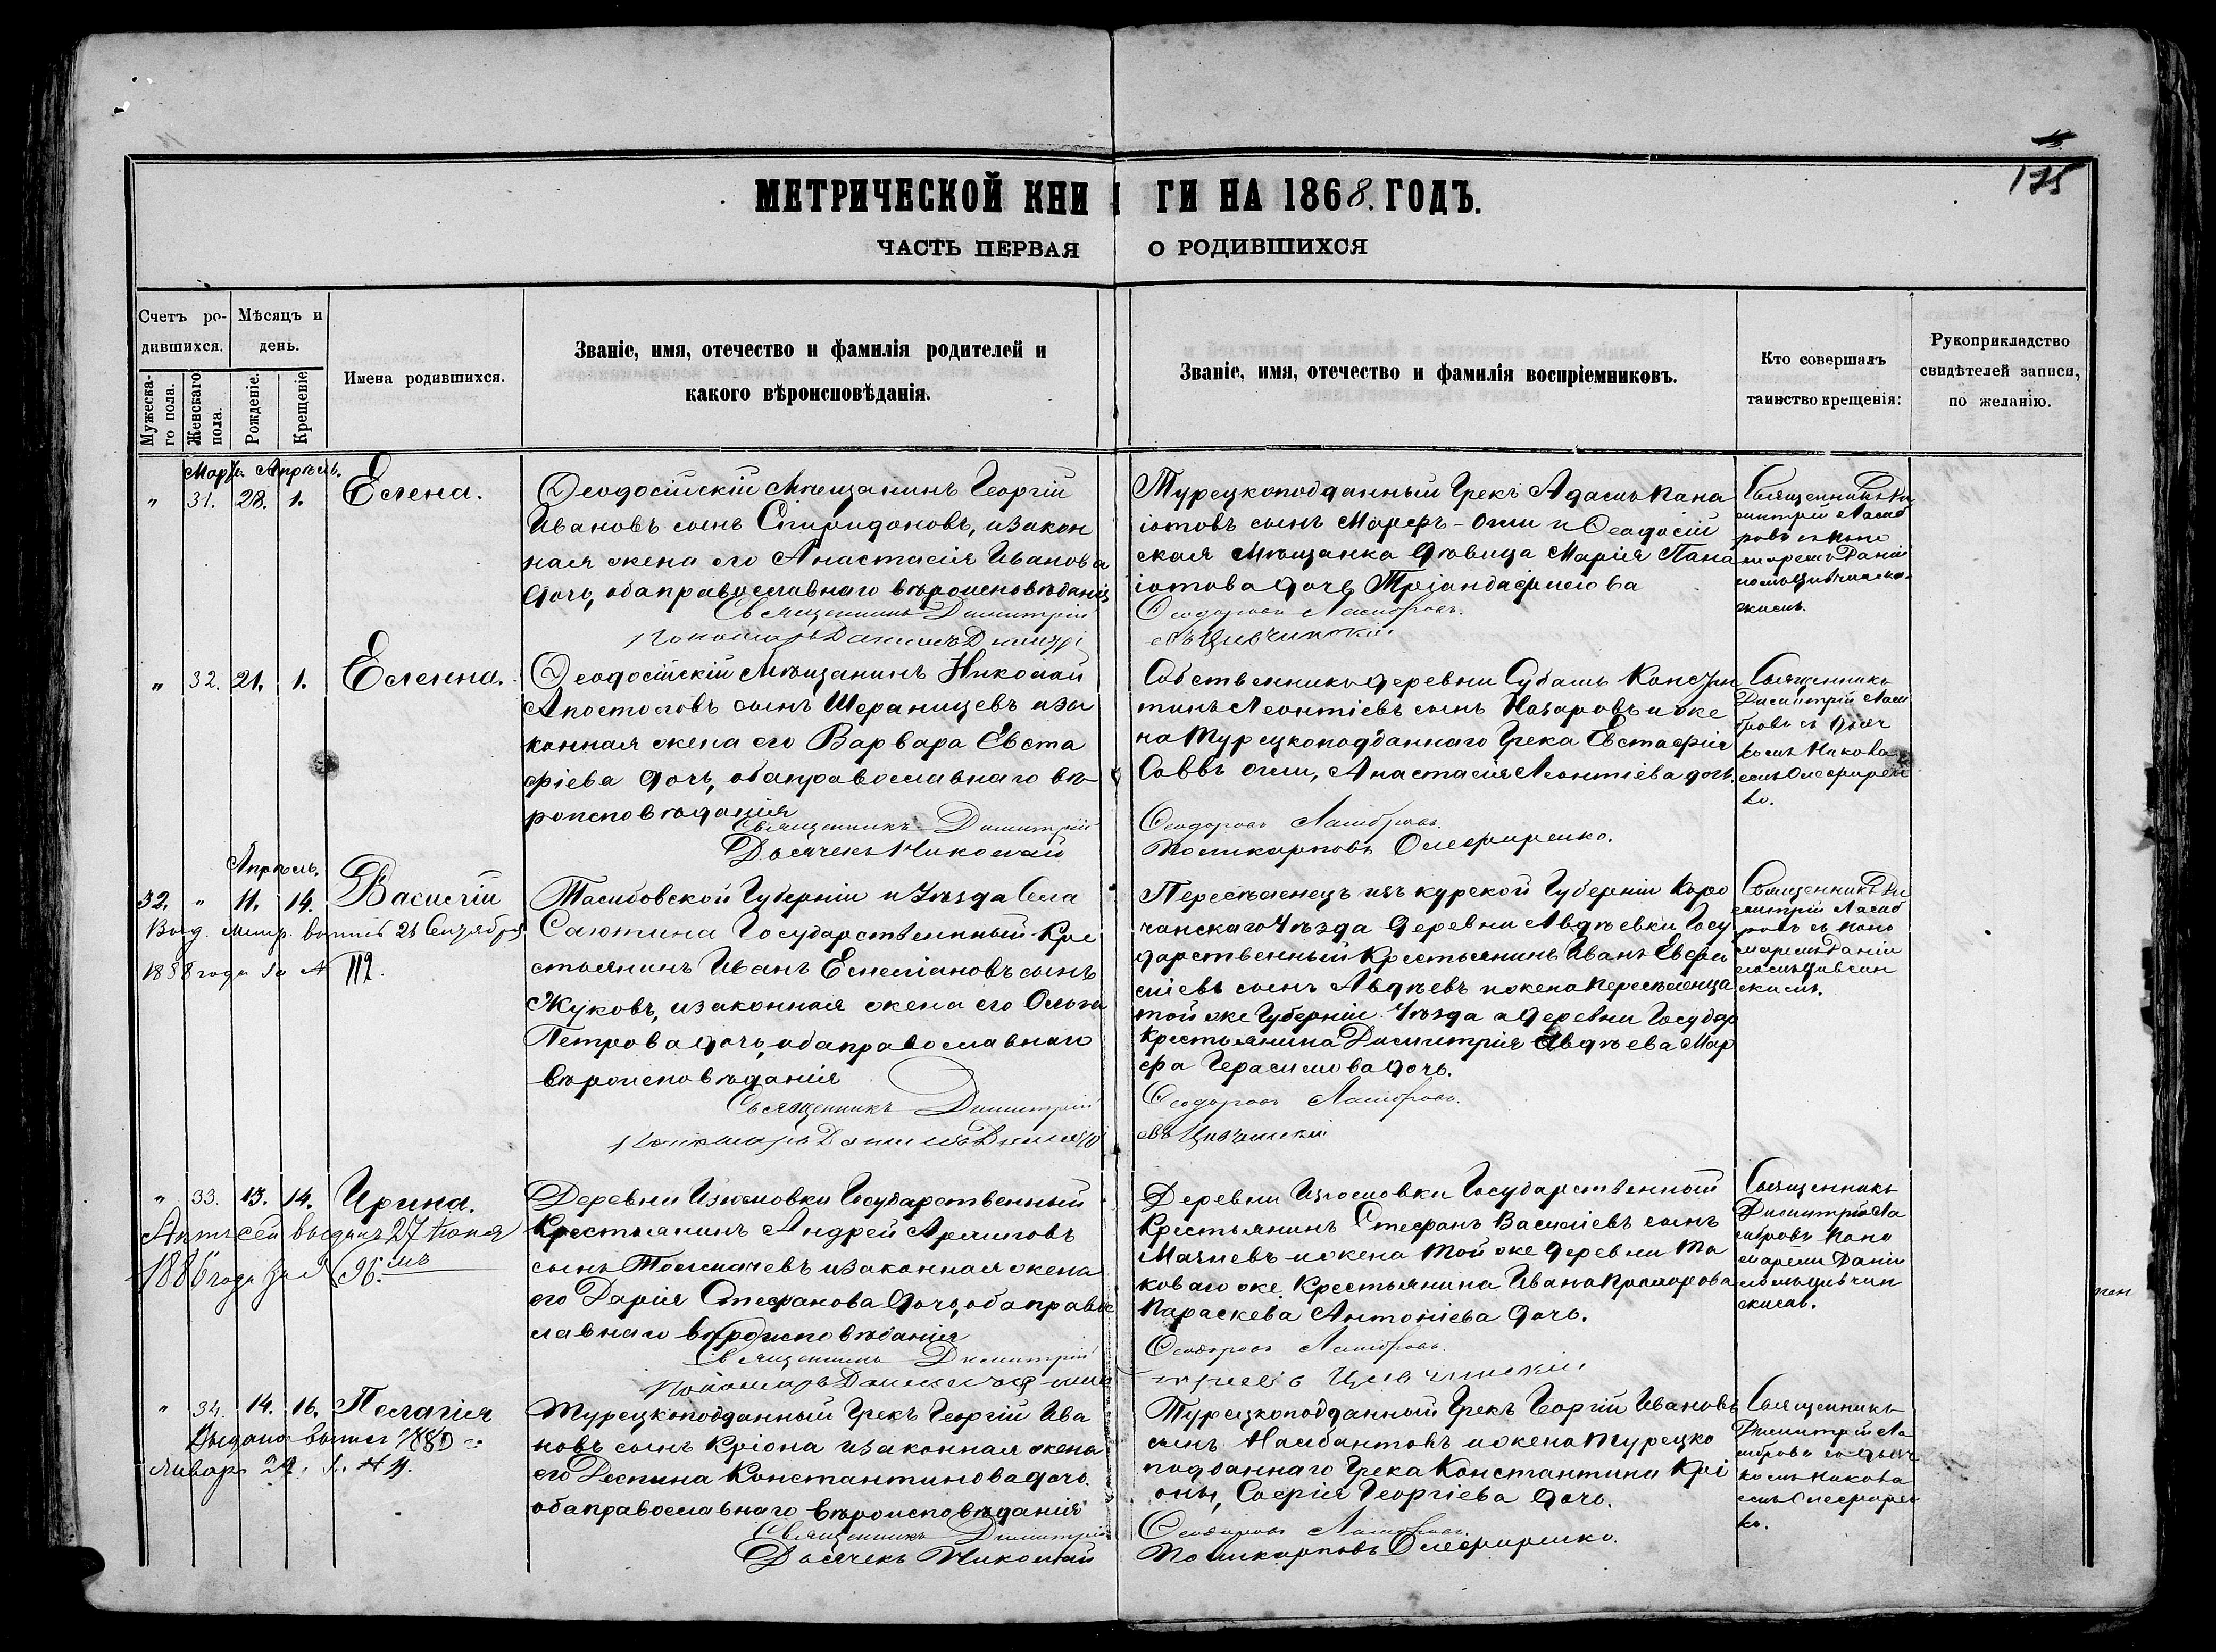 175
МЕТРИЧЕСКОЙ КНИГИ НА 1868. ГОДЪ.
ЧАСТЬ ПЕРВАЯ О РОДИВШИХСЯ
Счетъ родившихся.
Мѣсяцъ и день.
Мужескаго пола.
Женскаго пола.
Рожденіе.
Крещеніе
Имена родившихся.
Званіе, имя, отечество и фамилія родителей и
какого вѣроисповѣданія.
Званіе, имя, отечество и фамилія воспріемниковъ.
Кто совершалъ
таинство крещенія:
Рукоприкладство
свидѣтелей записи,
по желанію.
Мартъ Апрѣль.
" 31. 28. 1. Елена.
Ѳеодосійскій Мѣщанинъ Георгій
Ивановъ сынъ Спиридоновъ, изакон
ная жена его Анастасія Иванова
дочь, оба православнаго вѣроисповѣданія
Священникъ Димитрій
Пономарь Даніилъ
Турецкоподданный Грекъ Адамъ Пана
іотовъ сынъ и Ѳеодосій
ская Мѣщанка дѣвица Марія Пана
іотова дочь Тріандафилова
Ѳеодоровъ Ламбровъ.
Цивчинскій
Священникъ Ди
митрій Ламб
ровъ съ Поно
маремъ Даніи
ломъ Цивчин
скимъ.
" 32. 21. 1. Еленна.
Ѳеодосійскій Мѣщанинъ Николай
Апостоловъ сынъ иза
конная жена его Варвара Евста
фіева дочь, оба православнаго вѣ
роисповѣданія
Священникъ Димитрій
Дьячекъ Николай
Собственникъ деревни Субашъ Констан
тинъ Леонтіевъ сынъ Назаровъ и же
на Турецкоподданнаго Грека Евстафія
Саввъ оглы, Анастасія Леонтіева дочь.
Ѳеодоровъ Ламбровъ.
Поликарповъ Олефиренко.
Священникъ
Димитрій Лам
бровъ съ Дьяч
комъ Никола
емъ Олефирен
ко.
Апрѣль.
32. " 11. 14. Василій
Выд. метр. выпись 21 Сентября
1888 года за № 112.
Тамбовской Губерніи и Уѣзда Села
Салтина Государственный Кре
стьянинъ Иванъ Емеліановъ сынъ
Жуковъ, изаконная жена его Ольга
Петрова дочь, оба православнаго
вѣроисповѣданія
Священникъ Димитрій
Пономарь Даніилъ
Переселенецъ изъ курской Губерніи Коро
чанскаго Уѣзда деревни Авдѣевки Госу
дарственный Крестьянинъ Иванъ
сынъ Авдѣевъ и жена переселенца
той же Губерніи Уѣзда и деревни Государ
Крестьянина Димитрія Авдѣева Мар
фа Герасимова дочь.
Ѳеодоровъ Ламбровъ.
овъ Цивчинскій
Священникъ Ди
митрій Ламб
ровъ съ Поно
маремъ Даніи
ломъ Цивчин
скимъ.
" 33. 13. 14. Ирина.
Актъ сей выданъ 27 Іюня
1886 года за № 96.мъ
Деревни Изюмовки Государственный
Крестьянинъ Андрей
сынъ Толмачевъ изаконная жена
его Дарія Стефанова дочь, оба право
славнаго вѣроисповѣданія
Священникъ Димитрій
Пономарь Даніилъ
Деревни Изюмовки Государственный
Крестьянинъ Стефанъ Василіевъ сынъ
Мачневъ и жена той же деревни Та
коваго же Крестьянина Ивана
Параскева Антоніева дочь.
Ѳеодоровъ Ламбровъ.
Цивчинскій
Священникъ
Димитрій Ла
мбровъ Поно
марем Даніи
ломъ Цивчин
скимъ.
пен
" 34. 14. 16. Пелагія
Выдана выпись
Январ
Турецкоподданный Грекъ Георгій Ива
новъ сынъ Кріона изаконная жена
его Деспина Константинова дочь.
оба православнаго вѣроисповѣданія
Священникъ Димитрій
Дьячекъ Николай
Турецкоподданный Грекъ Георгій Ивановъ
сынъ и жена турецко
подданнаго Грека Константина Крі
оны, Софія Георгіева дочь.
Ѳеодоровъ Ламбровъ.
Поликарповъ Олефиренко.
Священникъ
Димитрій Ла
мбровъ со Дьяч
комъ Никола
емъ Олефирен
ко.